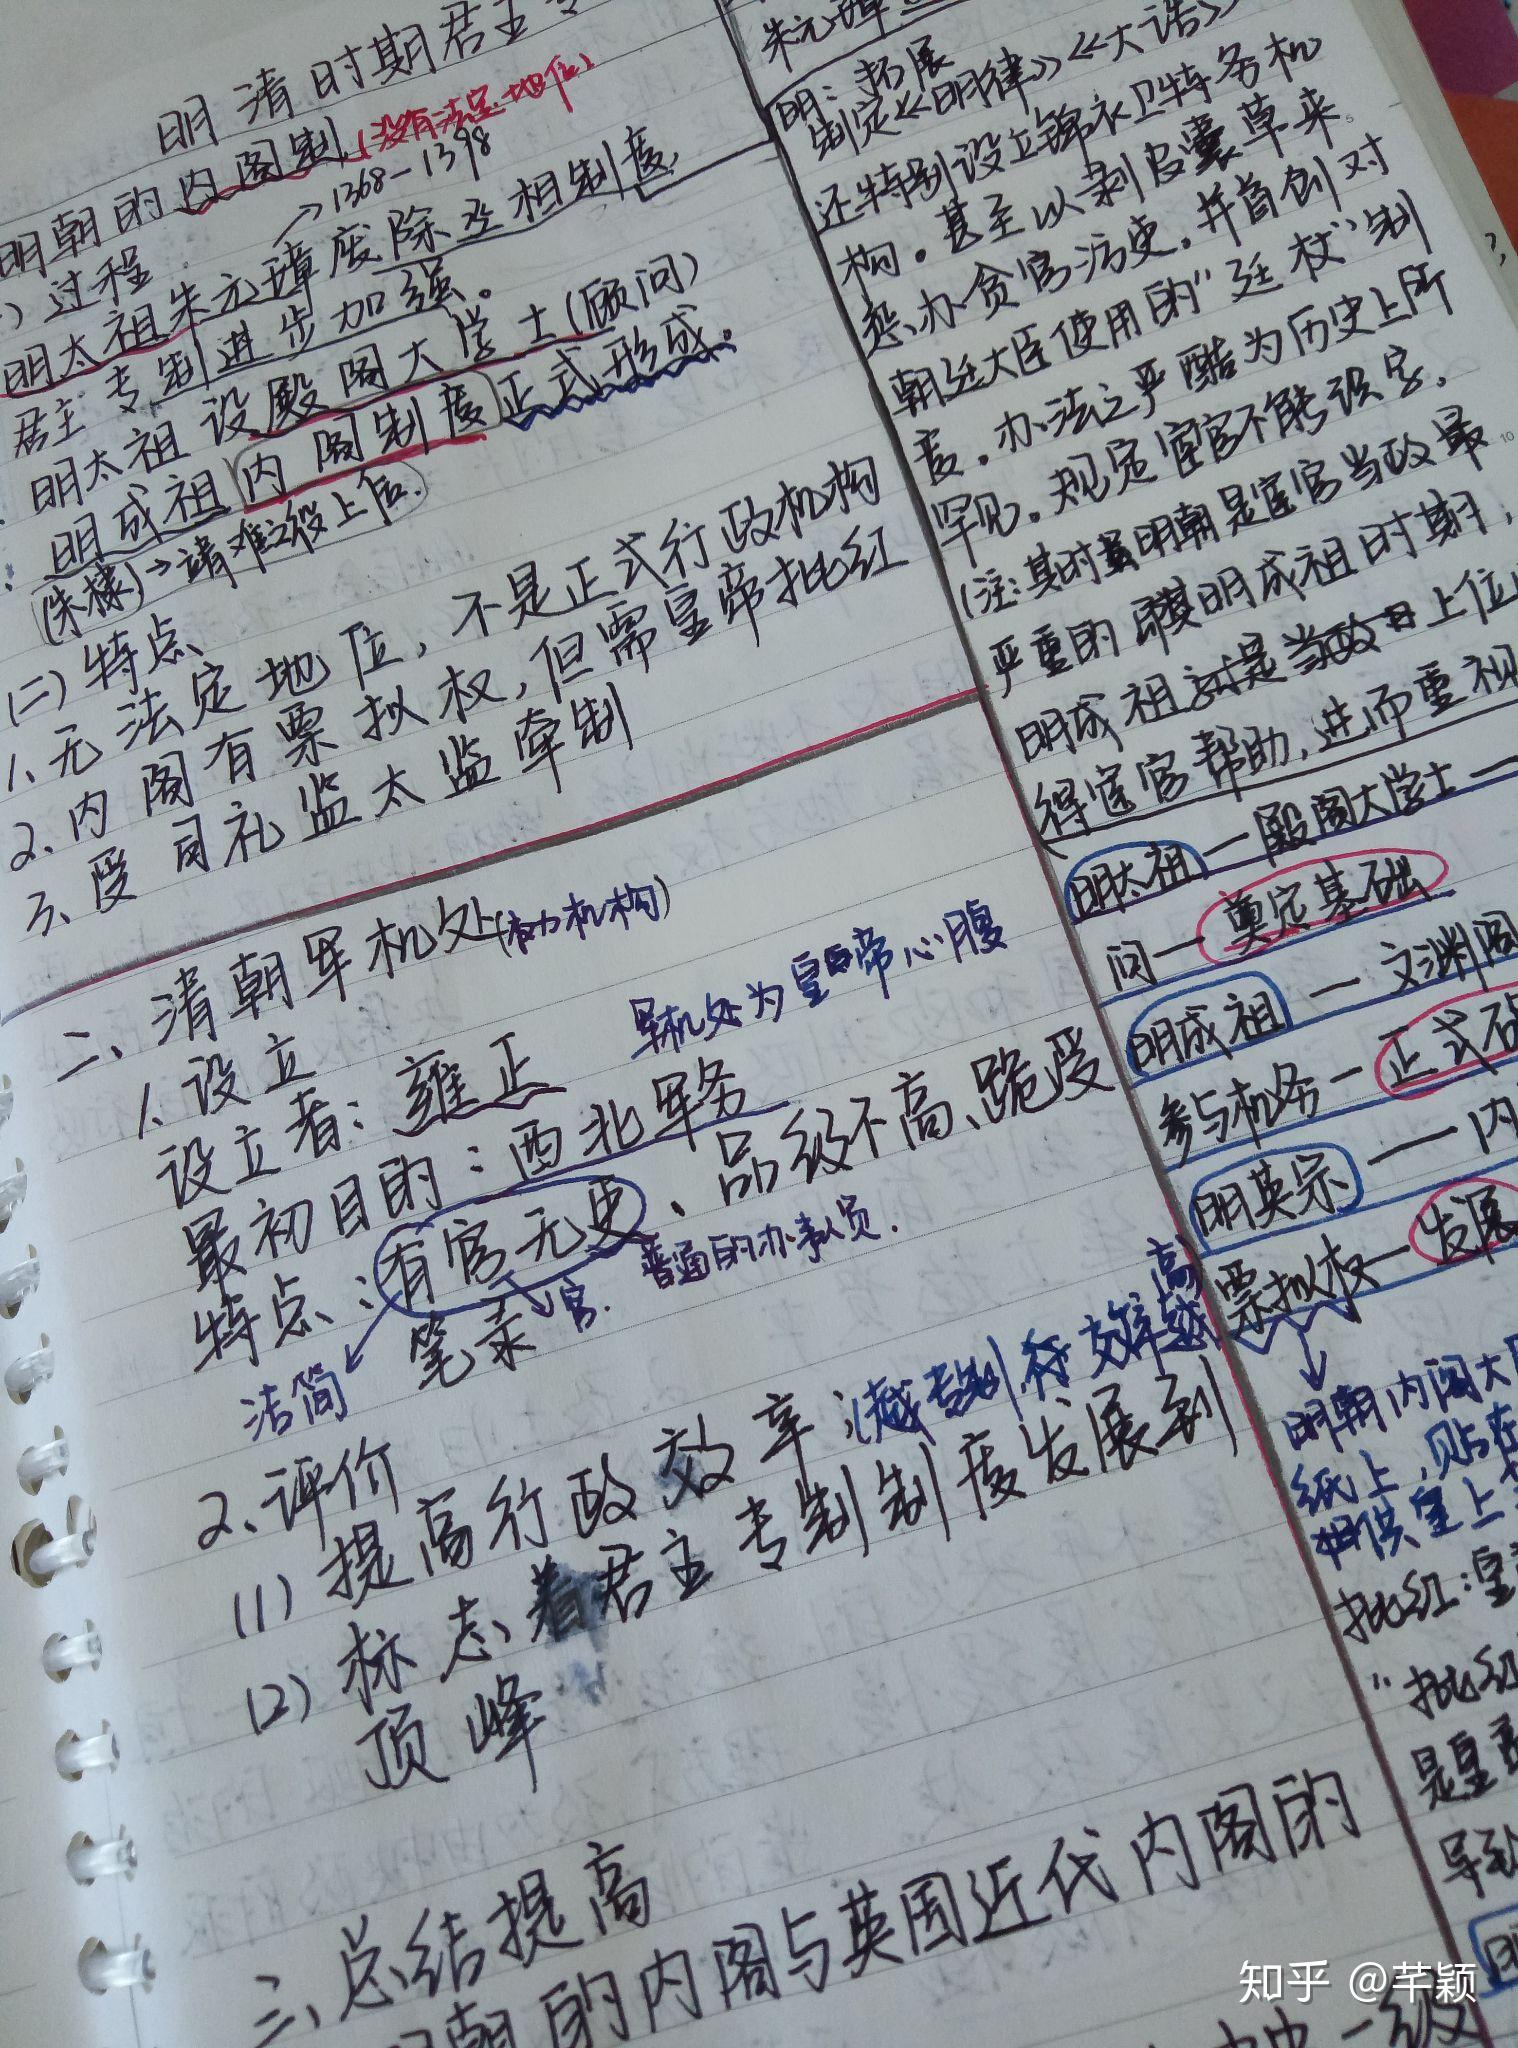 明清时期君主专
明朝的内阁制(没有法定地位)
过程 →1368-1398
明太祖朱元璋废除丞相制度,
君主专制进一步加强。
明太祖设殿阁大学士(顾问)
明成祖内阁制度正式形成。
(朱棣)→靖难之役上位.
(二)特点
1、无法定地位,不是正式行政机构
2、内阁有票拟权,但需皇帝批红
3、受司礼监太监牵制
二、清朝军机处(权力机构)
1、设立
设立者:雍正 军机处为皇帝心腹
最初目的:西北军务
特点:有官无吏、品级不高、跪受
笔录 官. 普通的办事人员.
洁简
2、评价
(1)提高行政效率;(越专制,行政效率越高
(2)标志着君主专制制度发展到
顶峰
三、总结提高
明朝的内阁与英国近代内阁的
朱元璋
明:拓展
制定《明律》《大诰》
还特别设立锦衣卫特务机
构。甚至以剥皮囊草来
惩办贪官污吏,并首创对
朝廷大臣使用的"廷杖"制
度。办法之严酷为历史上所
罕见。规定宦官不能识字,
(注:其时明朝是宦官当政最
严重的 明成祖时期,
明成祖就是当政 上位
得宦官帮助,进而重视
明太祖—殿阁大学士—
问—奠定基础
明成祖—文渊阁
参与机务—正式
明英宗—内
票拟权—发展
明朝内阁大
纸上,贴在
供皇上
批红:皇
"批红
是皇
导致
知乎 @芊颖